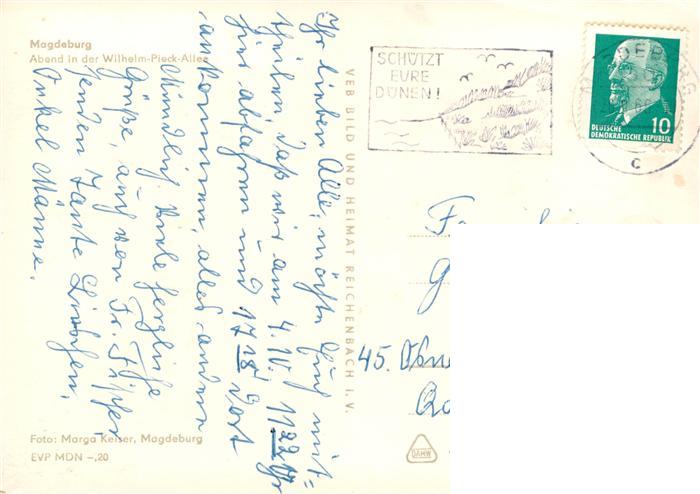 Magdeburg
Abend in der Wilhelm-Pieck-Allee
Ihr lieben Alle, möchte Euch mit=
theilen, daß wir am 4. IV. 11 22 Uhr
hier abfahren und 17 18 dort
ankommen, alles andere
Mündlich. Viele herzliche
Grüße auch von Fr.
senden Tante
Onkel Männe.
Foto: Marga Keiser, Magdeburg
EVP MDN –,20
VEB BILD UND HEIMAT REICHENBACH I. V.
SCHÜTZT
EURE
DÜNEN!
10
DEUTSCHE
DEMOKRATISCHE REPUBLIK
c
45.